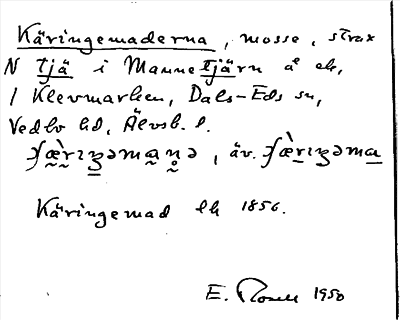 Käringemaderna, mosse, strax
N Tjä i Mannetjärn å ek,
1 Klevmarken, Dals-Eds sn,
Vedbo hd, Älvsb. l.
, äv.
Käringemad ek 1856.
E. 1950